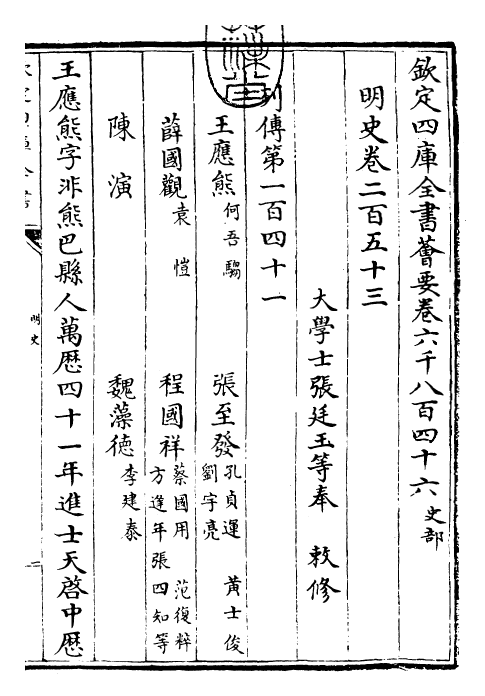 欽定四庫全書薈要卷六千八百四十六 史部
明史卷二百五十三
大學士張廷玉等奉 敕修
列傳第一百四十一
王應熊 何吾騶 張至發 孔貞運 黃士俊 劉宇亮
薛國觀 袁愷 程國祥 蔡國用 范復粹 方逢年 張四知等
陳演 魏藻德 李建泰
王應熊字非熊巴縣人萬厯四十一年進士天啓中厯
明史